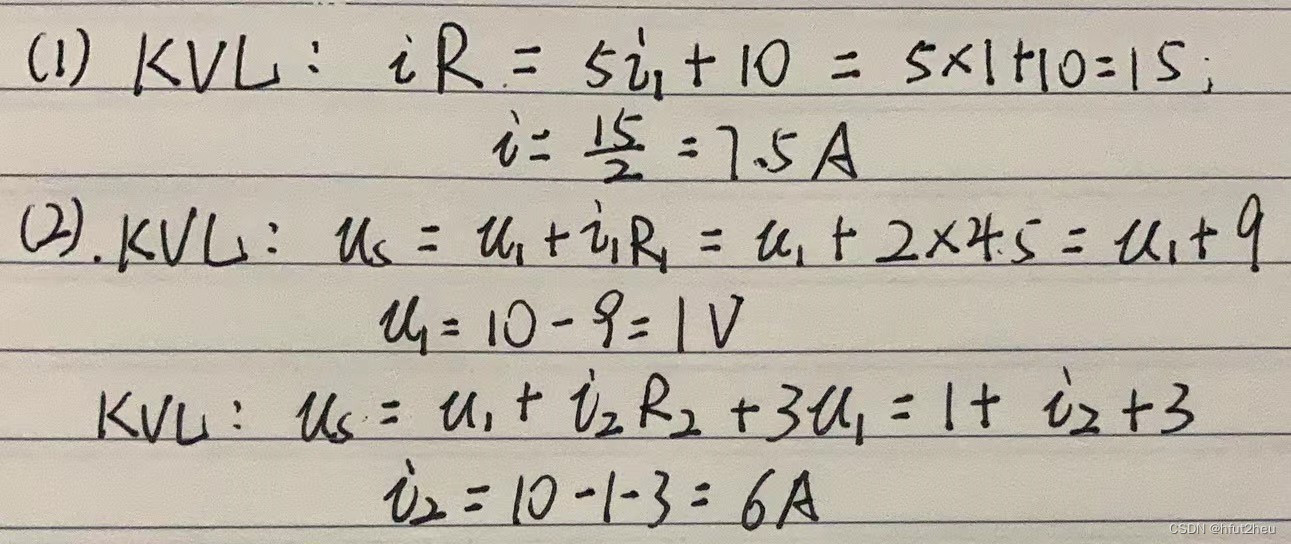 (1) KVL: iR = 5i₁ + 10 = 5×1+10=15;
i= 15/2 = 7.5A
(2). KVL: us = u₁ + i₁R₁ = u₁ + 2×4.5 = u₁+9
u₁= 10-9=1V
KVL: us = u₁ + i₂R₂ +3u₁ = 1+ i₂+3
i₂ = 10-1-3= 6A
CSDN @hfut2heu